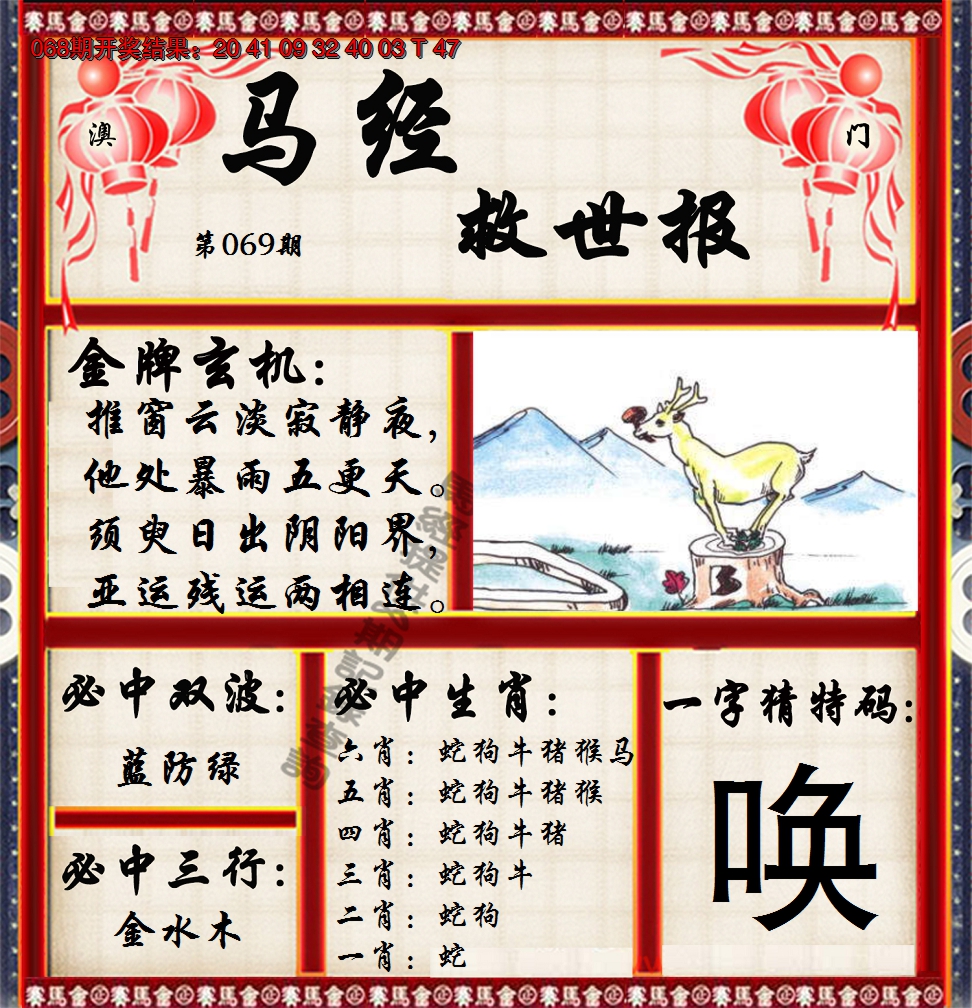 068期开奖结果：20 41 09 32 40 03 T 47
澳
门
马经
救世报
第069期
金牌玄机：
推窗云淡寂静夜，
他处暴雨五更天。
须臾日出阴阳界，
亚运残运两相连。
必中双波：
蓝防绿
必中三行：
金水木
必中生肖：
六肖：蛇狗牛猪猴马
五肖：蛇狗牛猪猴
四肖：蛇狗牛猪
三肖：蛇狗牛
二肖：蛇狗
一肖：蛇
一字猜特码：
唤